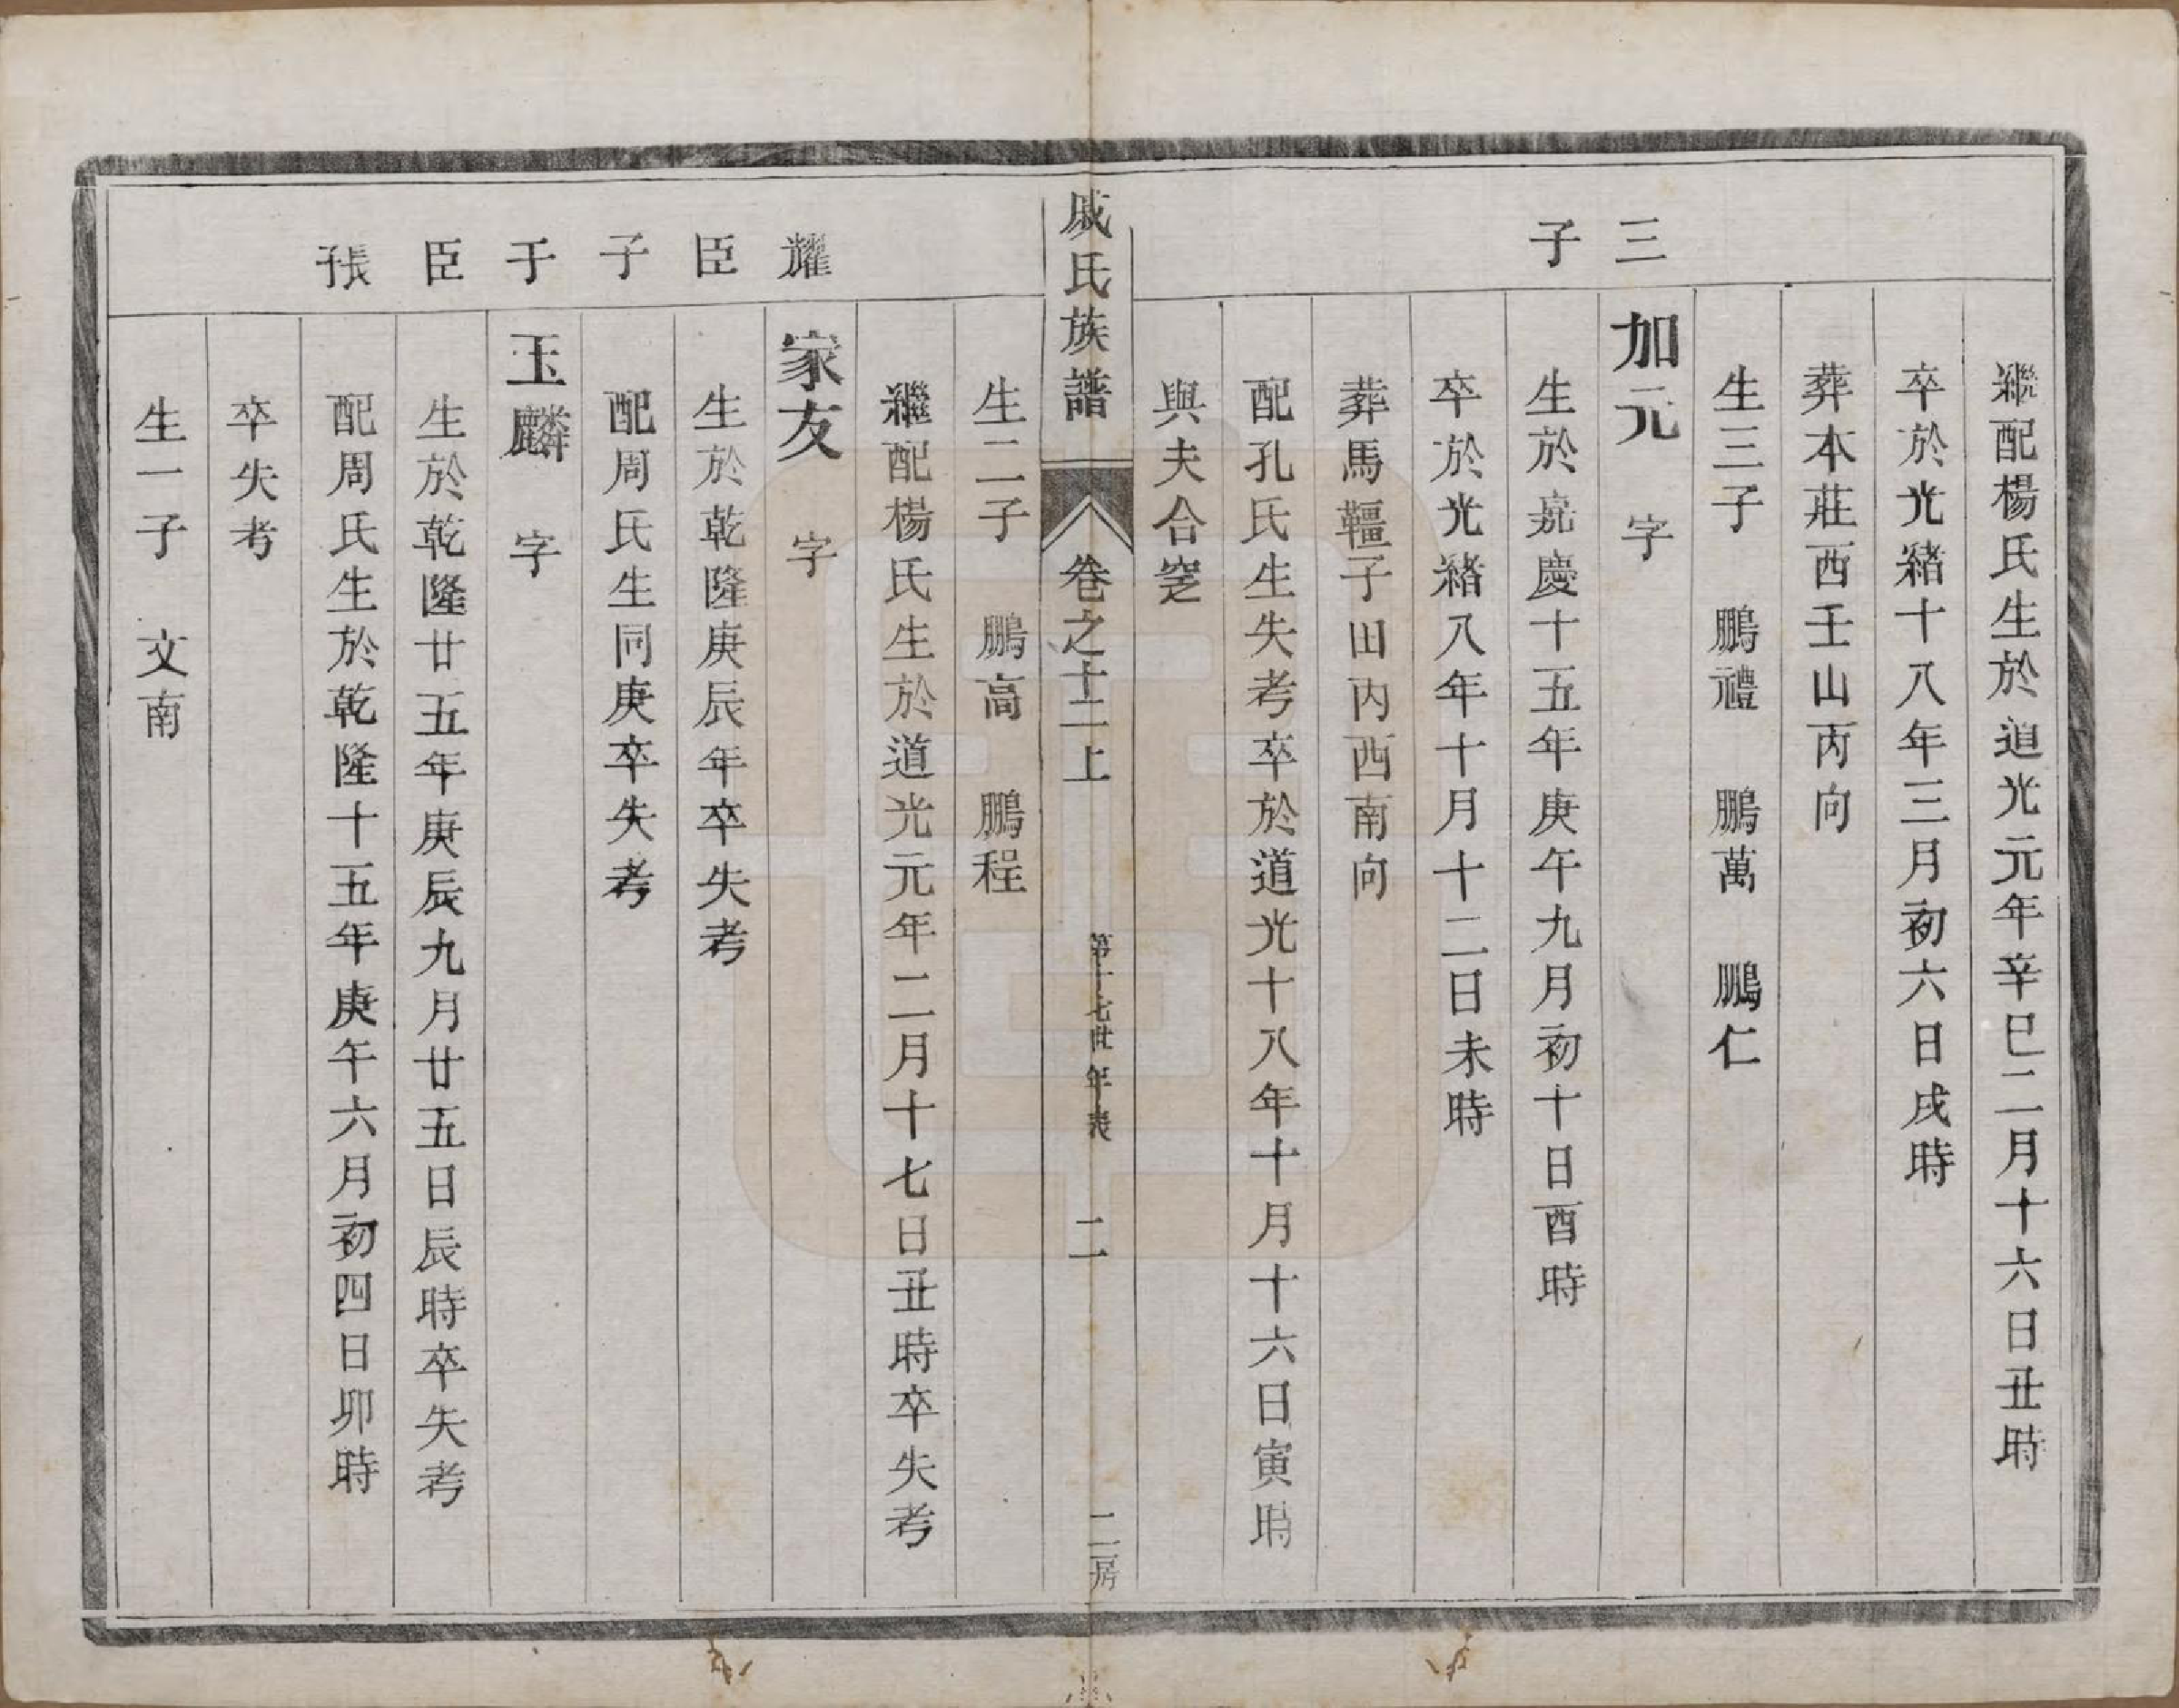 三
子
繼配楊氏生於道光元年辛巳二月十六日丑時
卒於光緒十八年三月初六日戌時
葬本莊西壬山丙向
生三子 鵬禮 鵬萬 鵬仁
加元 字
生於嘉慶十五年庚午九月初十日酉時
卒於光緒八年十月十二日未時
葬馬韁子田內西南向
配孔氏生失考卒於道光十八年十月十六日寅時
與夫合窆
戚氏族譜
卷之十二上
第十七世年表
二
二房
耀
臣
子
于
臣
張子
生二子 鵬高 鵬程
繼配楊氏生於道光元年二月十七日丑時卒失考
家友 字
生於乾隆庚辰年卒失考
配周氏生同庚卒失考
玉麟 字
生於乾隆廿五年庚辰九月廿五日辰時卒失考
配周氏生於乾隆十五年庚午六月初四日卯時
卒失考
生一子 文南